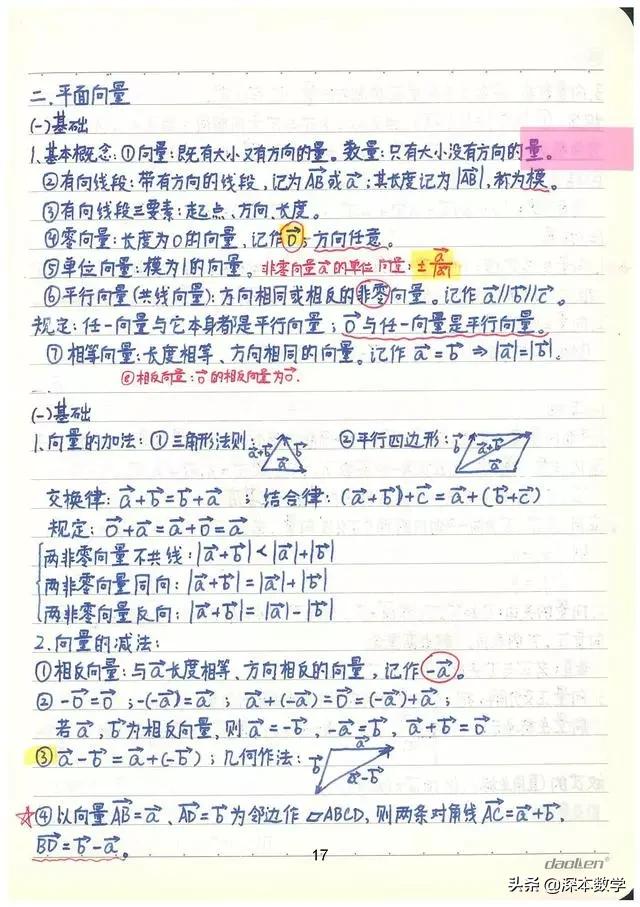 二.平面向量
(一)基础
1.基本概念:①向量:既有大小又有方向的量。数量:只有大小没有方向的量。
②有向线段:带有方向的线段,记为AB⃗或a⃗;其长度记为|AB⃗|,称为模。
③有向线段三要素:起点、方向、长度。
④零向量:长度为0的向量,记作0⃗;方向任意。
⑤单位向量:模为1的向量。非零向量a⃗的单位向量:±a⃗/|a⃗|
⑥平行向量(共线向量):方向相同或相反的非零向量。记作a⃗∥b⃗∥c⃗。
规定:任一向量与它本身都是平行向量;0⃗与任一向量是平行向量。
⑦相等向量:长度相等、方向相同的向量。记作a⃗=b⃗⇒|a⃗|=|b⃗|。
⑧相反向量:0⃗的相反向量为0⃗.
(一)基础
1.向量的加法:①三角形法则: a⃗+b⃗ b⃗ a⃗ ②平行四边形: b⃗ a⃗+b⃗ a⃗
交换律:a⃗+b⃗=b⃗+a⃗;结合律:(a⃗+b⃗)+c⃗=a⃗+(b⃗+c⃗)
规定:0⃗+a⃗=a⃗+0⃗=a⃗
两非零向量不共线:|a⃗+b⃗|<|a⃗|+|b⃗|
两非零向量同向:|a⃗+b⃗|=|a⃗|+|b⃗|
两非零向量反向:|a⃗+b⃗|=|a⃗|-|b⃗|
2.向量的减法:
①相反向量:与a⃗长度相等、方向相反的向量,记作-a⃗。
②-0⃗=0⃗;-(-a⃗)=a⃗;a⃗+(-a⃗)=0⃗=(-a⃗)+a⃗;
若a⃗,b⃗为相反向量,则a⃗=-b⃗,-a⃗=b⃗,a⃗+b⃗=0⃗
③a⃗-b⃗=a⃗+(-b⃗);几何作法: b⃗ a⃗ a⃗-b⃗
☆④以向量AB⃗=a⃗、AD⃗=b⃗为邻边作▱ABCD,则两条对角线AC⃗=a⃗+b⃗,
BD⃗=b⃗-a⃗。
17
daolien®
头条@深本数学